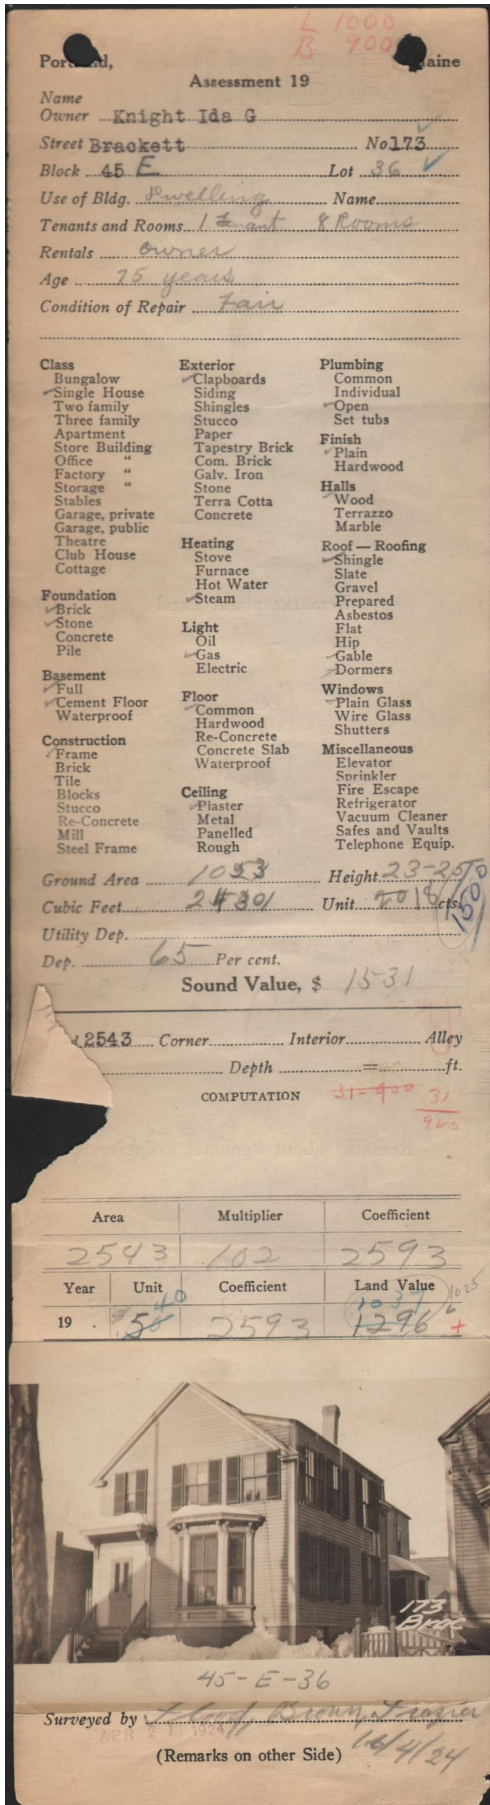 L 1000
B 900
Portland, Maine
Assessment 19
Name
Owner Knight Ida G
Street Brackett No 173
Block 45 E Lot 36
Use of Bldg. Dwelling Name
Tenants and Rooms 1 Tenant 8 Rooms
Rentals owner
Age 75 years
Condition of Repair Fair
Class
Bungalow
Single House
Two family
Three family
Apartment
Store Building
Office "
Factory "
Storage "
Stables
Garage, private
Garage, public
Theatre
Club House
Cottage
Foundation
Brick
Stone
Concrete
Pile
Basement
Full
Cement Floor
Waterproof
Construction
Frame
Brick
Tile
Blocks
Stucco
Re-Concrete
Mill
Steel Frame
Exterior
Clapboards
Siding
Shingles
Stucco
Paper
Tapestry Brick
Com. Brick
Galv. Iron
Stone
Terra Cotta
Concrete
Heating
Stove
Furnace
Hot Water
Steam
Light
Oil
Gas
Electric
Floor
Common
Hardwood
Re-Concrete
Concrete Slab
Waterproof
Ceiling
Plaster
Metal
Panelled
Rough
Plumbing
Common
Individual
Open
Set tubs
Finish
Plain
Hardwood
Halls
Wood
Terrazzo
Marble
Roof — Roofing
Shingle
Slate
Gravel
Prepared
Asbestos
Flat
Hip
Gable
Dormers
Windows
Plain Glass
Wire Glass
Shutters
Miscellaneous
Elevator
Sprinkler
Fire Escape
Refrigerator
Vacuum Cleaner
Safes and Vaults
Telephone Equip.
Ground Area 1053 Height 23-25
Cubic Feet 24301 Unit 20 18 cts.
1500
Utility Dep.
Dep. 65 Per cent.
Sound Value, $ 1531
2543 Corner Interior Alley
Depth = ft.
COMPUTATION 31-900 31
925
Area Multiplier Coefficient
2543 .102 2593
Year Unit Coefficient Land Value
40 1037 1025
19 . 50 2593 1296 +
173
Brac
45-E-36
Surveyed by Brown, Frazier
APR 1924
16/4/24
(Remarks on other Side)